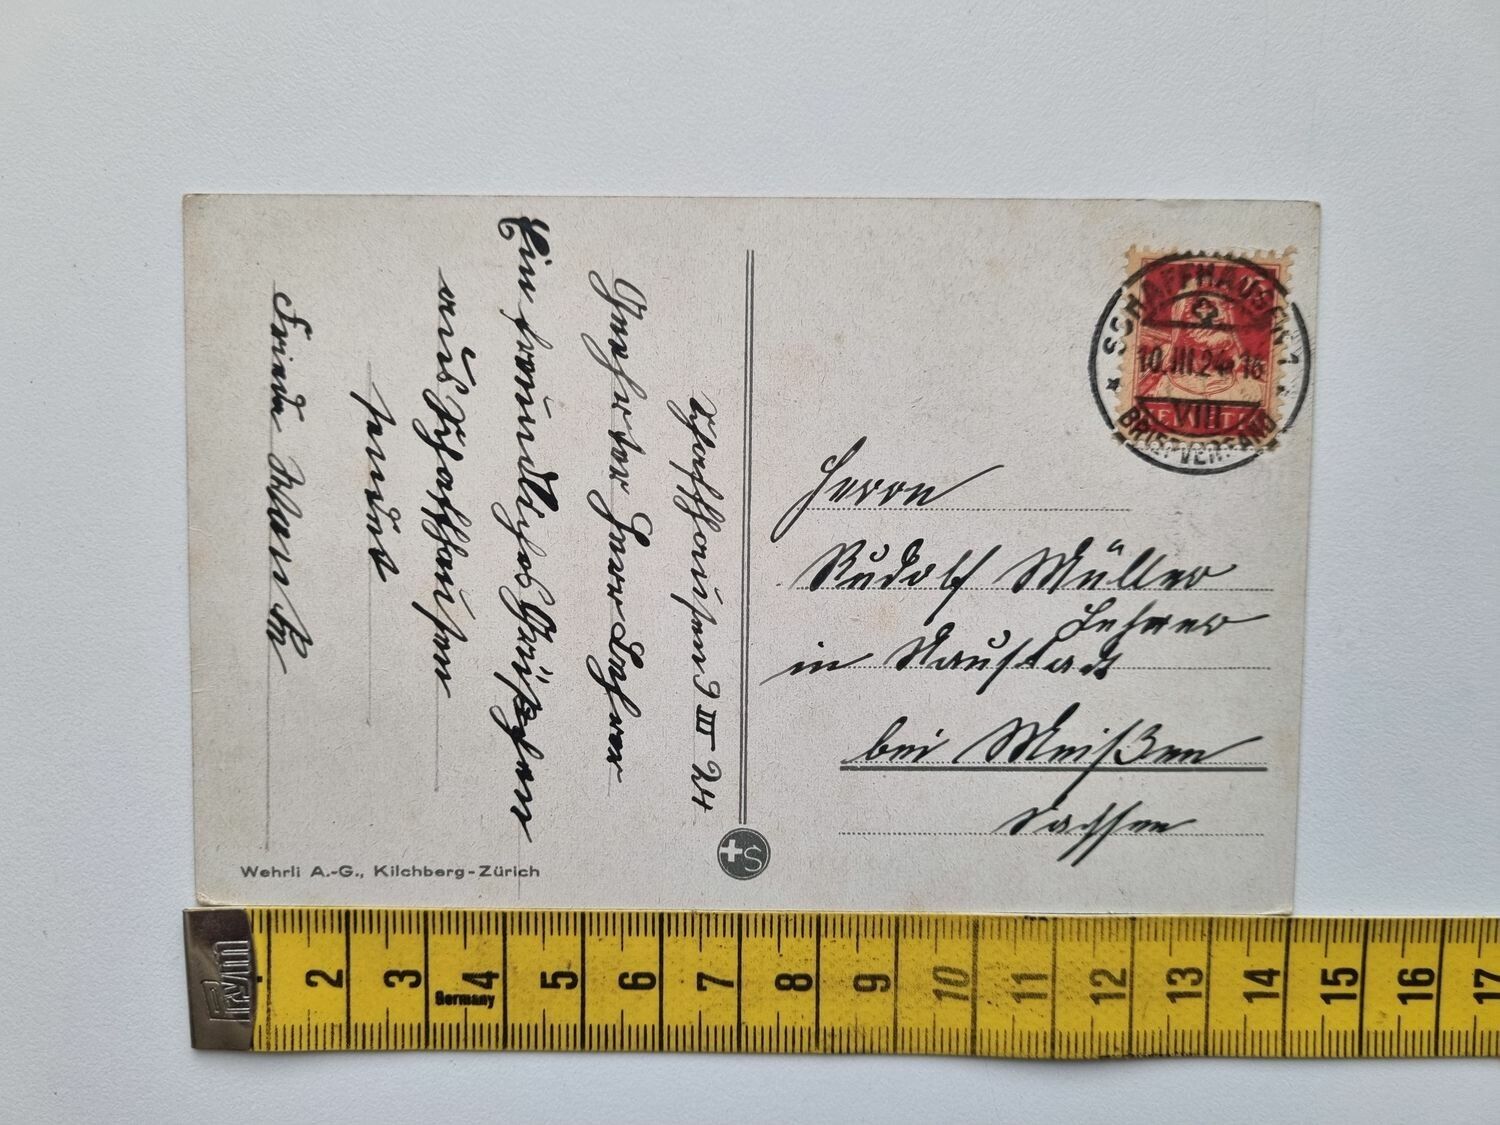 Schaffhausen 9 III 24
Geehrter Herr Lehrer
Ein freundliches Grüßchen
aus Schaffhausen
sendet
Frieda
Wehrli A.-G., Kilchberg-Zürich
SCHAFFHAUSEN 1
10.III.24 16
VIII
BRIEFVERSAND
HELVETIA
Herrn
Rudolf Müller
Lehrer
in Naustadt
bei Meißen
Sachsen
S
Prym
2 3 4 5 6 7 8 9 10 11 12 13 14 15 16 17
Germany